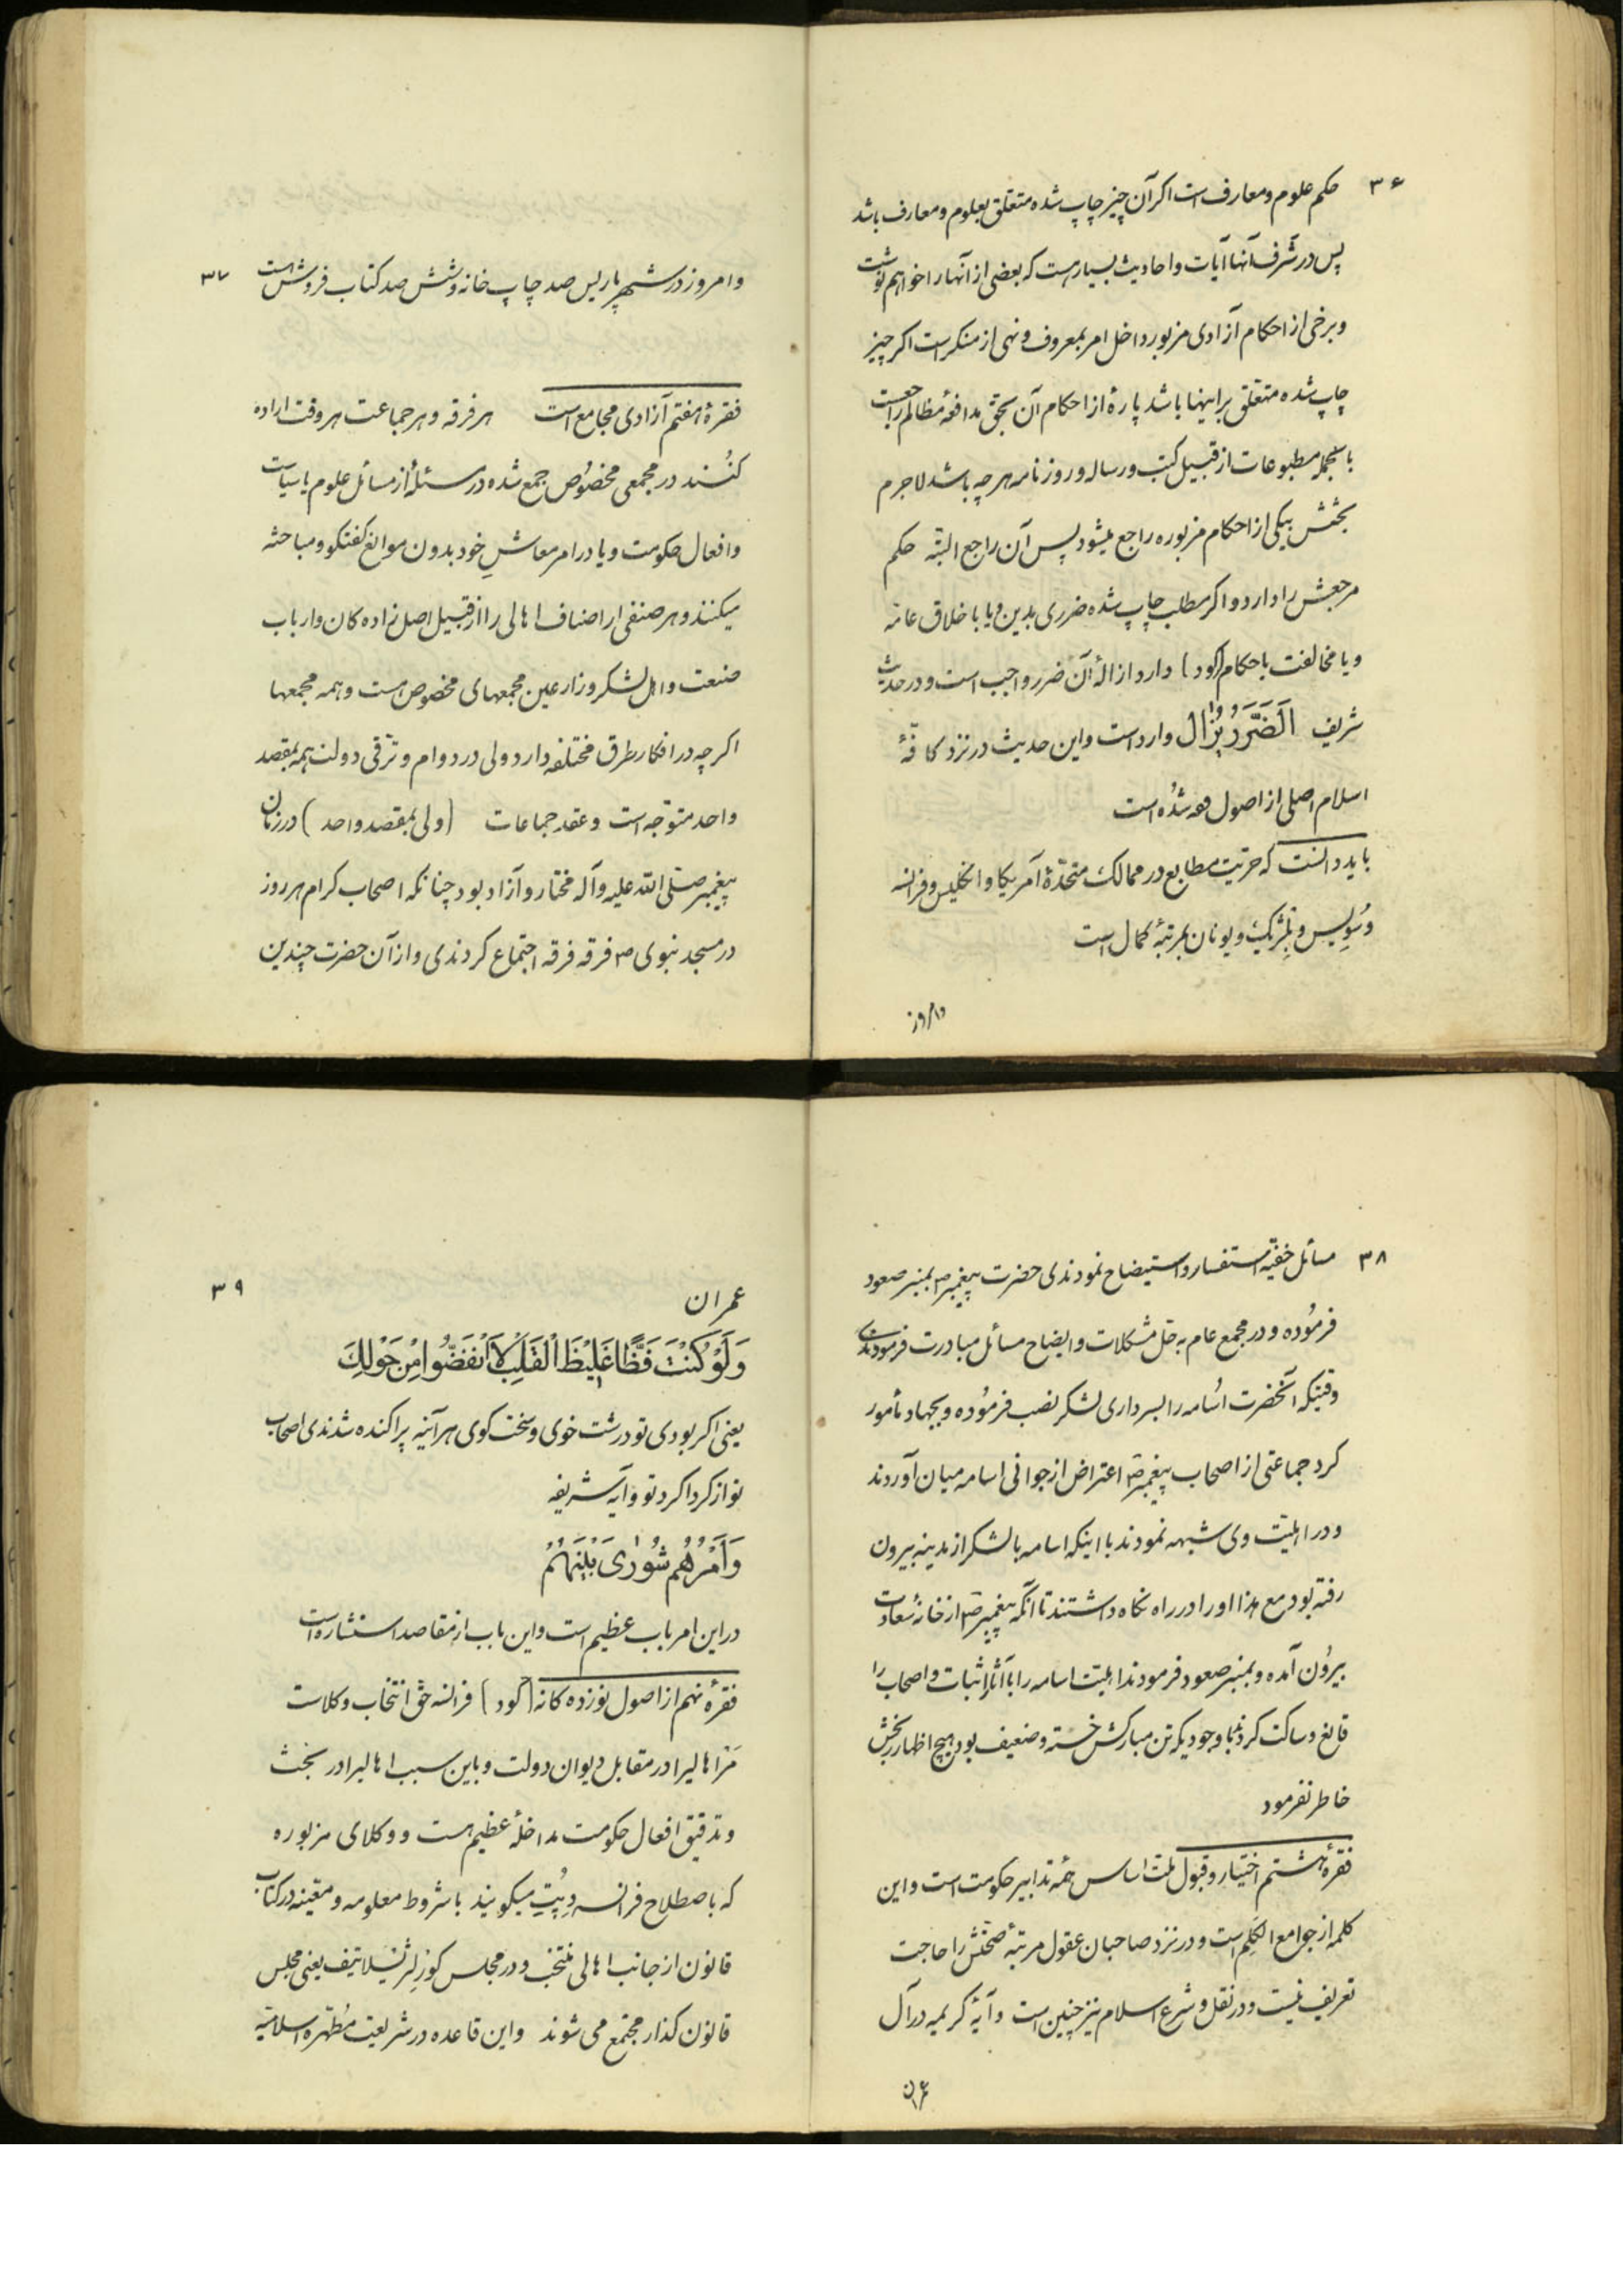 ۳۶
حکم علوم و معارف است اکر آن چیز چاپ شده متعلق بعلوم و معارف باشد
پس در شرف آنها آیات و احادیث بسیار هست که بعضی از آنها را خواهیم نوشت
و برخی از احکام آزادی مزبور داخل امر بمعروف و نهی از منکر است اکر چیز
چاپ شده متعلق براینها باشد پارۀ از احکام آن بحق مدافعۀ مظالم راجعست
بالجمله مطبوعات از قبیل کتب و رساله و روزنامه هرچه باشد لاجرم
بحثش بیکی از احکام مزبوره راجع میشود پس آن راجع البته حکم
مرجعش را دارد و اکر مطلب چاپ شده ضرری بدین و یا باخلاق عامه
و یا مخالفت باحکام (کود) دارد ازالۀ آن ضرر واجب است و در حدیث
شریف اَلضَّرَرُ یُزالُ وارد است و این حدیث در نزد کافۀ
اسلام اصلی از اصول فقه شده است
باید دانست که حریت مطابع در ممالک متحدۀ آمریکا و انکلیس و فرانسه
و سویس و بلژیک و یونان بمرتبۀ کمال است
وامروز
۳۷
وامروز در شهر پاریس صد چاپ خانه و شش صد کتاب فروش است
فقرۀ هفتم آزادی مجامع است هر فرقه و هر جماعت هر وقت اراده
کنند در مجمعی مخصوص جمع شده در مسئلۀ از مسائل علوم یا سیاسات
و افعال حکومت و یا در امر معاشِ خود بدون موانع کفتکو و مباحثه
میکنند و هر صنفی از اصناف اهالی را از قبیل اصل زاده کان و ارباب
صنعت و اهل لشکر و زارعین مجمعهای مخصوص هست و همه مجمعها
اکرچه در افکار طرق مختلفه دارد ولی در دوام و ترقی دولت همه بمقصد
واحد متوجه است و عقد جماعات (ولی بمقصد واحد) در زمان
پیغمبر صلی الله علیه وآله مختار و آزاد بود چنانکه اصحاب کرام هر روز
در مسجد نبوی ص فرقه فرقه اجتماع کردندی و از آن حضرت چندین
۳۸
مسائل خفیه استفسار و استیضاح نمودندی حضرت پیغمبر ص بمنبر صعود
فرموده و در مجمع عام به حل مشکلات و ایضاح مسائل مبادرت فرمودندی
وقتیکه آنحضرت اسامه را بسرداری لشکر نصب فرموده و بجهاد مأمور
کرد جماعتی از اصحاب پیغمبر ص اعتراض از جوانی اسامه میان آوردند
و در اهلیت وی شبهه نمودند با اینکه اسامه با لشکر از مدینه بیرون
رفته بود مع هذا او را در راه نکاه داشتند تا آنکه پیغمبر ص از خانۀ سعادت
بیرون آمده و بمنبر صعود فرمودند اهلیت اسامه را بآثار اثبات و اصحاب را
قانع و ساکت کردند با وجودیکه تن مبارکش خسته و ضعیف بود هیچ اظهار رنجش
خاطر نفرمود
فقرۀ هشتم اختیار و قبول ملت اساس همۀ تدابیر حکومت است و این
کلمه از جوامع الکلم است و در نزد صاحبان عقول مرتبۀ صحتش را حاجت
تعریف نیست و در نقل و شرع اسلام نیز چنین است و آیۀ کریمه در آل
عمران
۳۹
عمران
وَلَوْ کُنْتَ فَظًّا غَلیظَ الْقَلْبِ لاَ انْفَضُّوا مِنْ حَوْلِکَ
یعنی اکر بودی تو درشت خوی و سخت کوی هر آینه پراکنده شدندی اصحاب
تو از کرداکرد تو و آیه شریفه
وَاَمْرُهُمْ شُورٰی بَیْنَهُمْ
در این امر باب عظیم است و این باب از مقاصد استشاره است
فقرۀ نهم از اصول نوزده کانه (کود) فرانسه حق انتخاب وکلاست
مر اهالیرا در مقابل دیوان دولت و باین سبب اهالیرا در بحث
و تدقیق افعال حکومت مداخلۀ عظیم هست و وکلای مزبوره
که باصطلاح فرانسه دپُتِ میکویند با شروط معلومه و معینه در کتاب
قانون از جانب اهالی منتخب و در مجلس کورلژیسلاتیف یعنی مجلس
قانون کذار مجتمع می شوند و این قاعده در شریعت مطهره اسلامیه